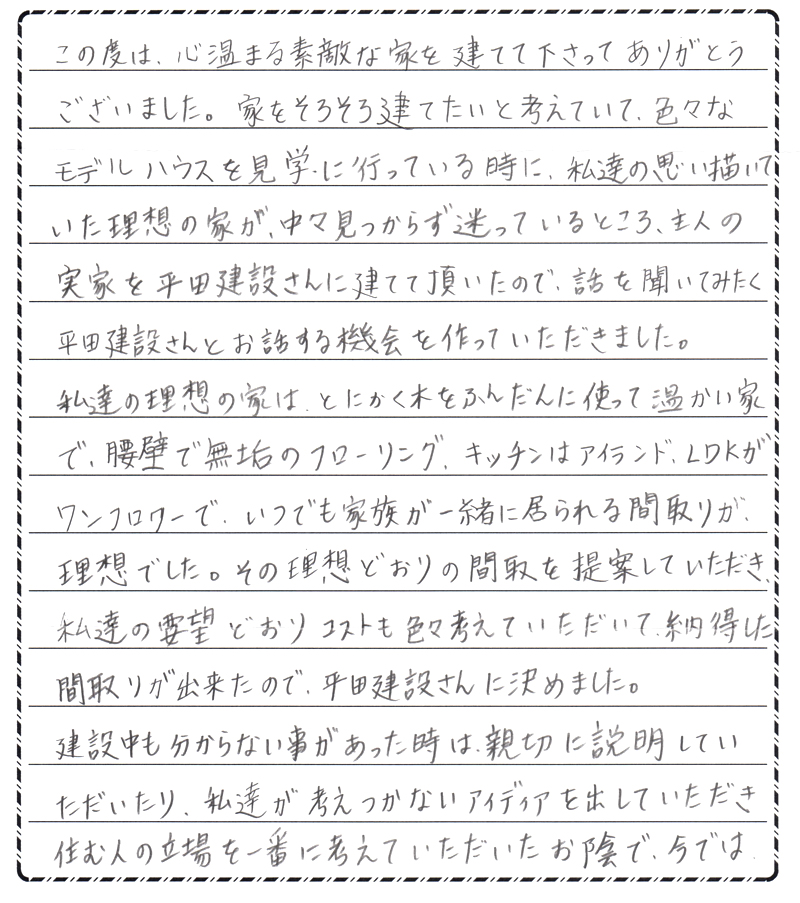 この度は、心温まる素敵な家を建てて下さってありがとう
ございました。家をそろそろ建てたいと考えていて、色々な
モデルハウスを見学に行っている時に、私達の思い描いて
いた理想の家が、中々見つからず迷っているところ、主人の
実家を平田建設さんに建てて頂いたので、話を聞いてみたく
平田建設さんとお話する機会を作っていただきました。
私達の理想の家は、とにかく木をふんだんに使って温かい家
で、腰壁で無垢のフローリング、キッチンはアイランド、LDKが
ワンフロワーで、いつでも家族が一緒に居られる間取りが、
理想でした。その理想どおりの間取を提案していただき、
私達の要望どおりコストも色々考えていただいて、納得した
間取りが出来たので、平田建設さんに決めました。
建設中も分からない事があった時は、親切に説明してい
ただいたり、私達が考えつかないアイディアを出していただき
住む人の立場を一番に考えていただいたお陰で、今では